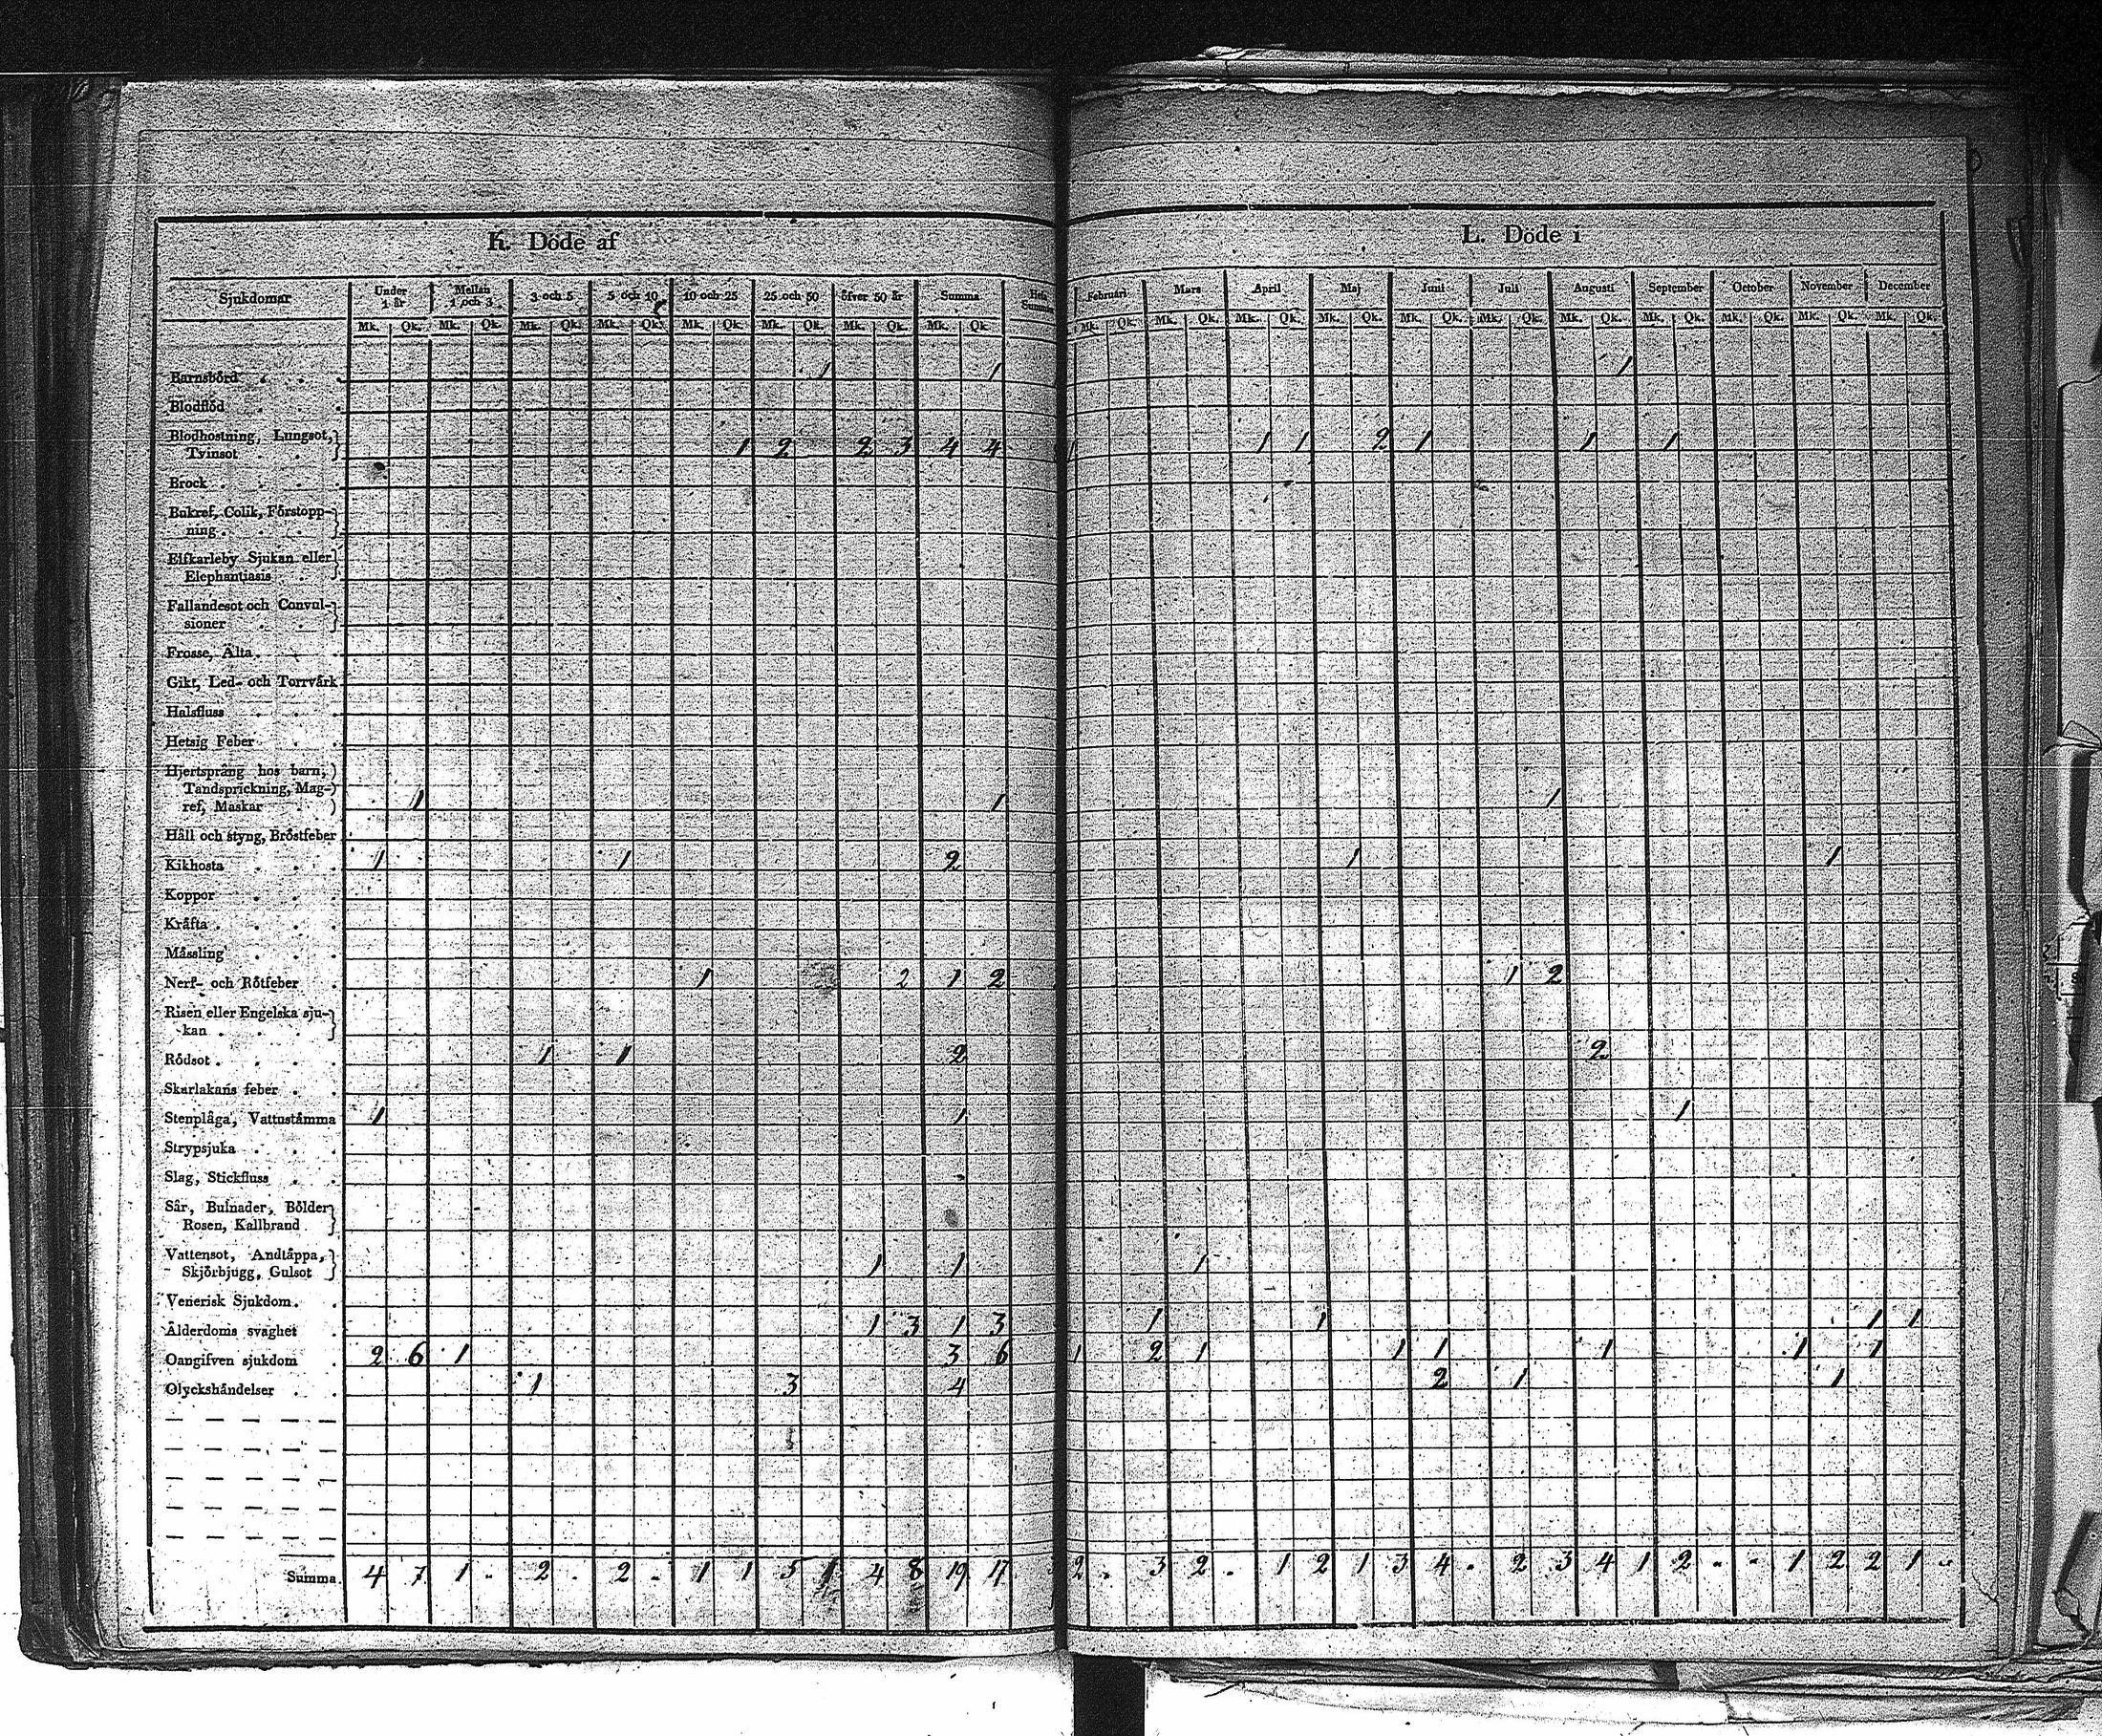 K. Döde af
L. Döde i
Sjukdomar Under 1 år Mellan 1 och 3 3 och 5 5 och 10 10 och 25 25 och 50 öfver 50 år Summa Hela Summa Februari Mars April Maj Juni Juli Augusti September October November December
Mk. Qk. Mk. Qk. Mk. Qk. Mk. Qk. Mk. Qk. Mk. Qk. Mk. Qk. Mk. Qk. Mk. Qk. Mk. Qk. Mk. Qk. Mk. Qk. Mk. Qk. Mk. Qk. Mk. Qk. Mk. Qk. Mk. Qk. Mk. Qk. Mk. Qk.
Barnsbörd 1 1 1
Blodflöd
Blodhostning, Lungsot,
Tvinsot 1 2 2 3 4 4 1 1 1 2 1 1 1
Brock
Bukref, Colik, Förstopp-
ning
Elfkarleby Sjukan eller
Elephantiasis
Fallandesot och Convul-
sioner
Frosse, Älta
Gikt, Led- och Torrvärk
Halsfluss
Hetsig Feber
Hjertsprång hos barn,
Tandsprickning, Mag-
ref, Maskar 1 1 1
Håll och styng, Bröstfeber
Kikhosta 1 1 2 1 1
Koppor
Kräfta
Mässling
Nerf- och Rötfeber 1 2 1 2 1 2
Risen eller Engelska sju-
kan
Rödsot 1 1 2 2
Skarlakans feber
Stenplåga, Vattustämma 1 1 1
Strypsjuka
Slag, Stickfluss
Sår, Bulnader, Bölder
Rosen, Kallbrand
Vattensot, Andtäppa,
Skjörbjugg, Gulsot 1 1 1
Venerisk Sjukdom
Ålderdoms svaghet 1 3 1 3 1 1 1 1
Oangifven sjukdom 2 6 1 3 6 1 2 1 1 1 1 1 1
Olyckshändelser 1 3 4 2 1 1
Summa 4 7 1 - 2 - 2 - 1 1 5 1 4 8 19 17 2 - 3 2 - 1 2 1 3 4 - 2 3 4 1 2 - - 1 2 2 1 -